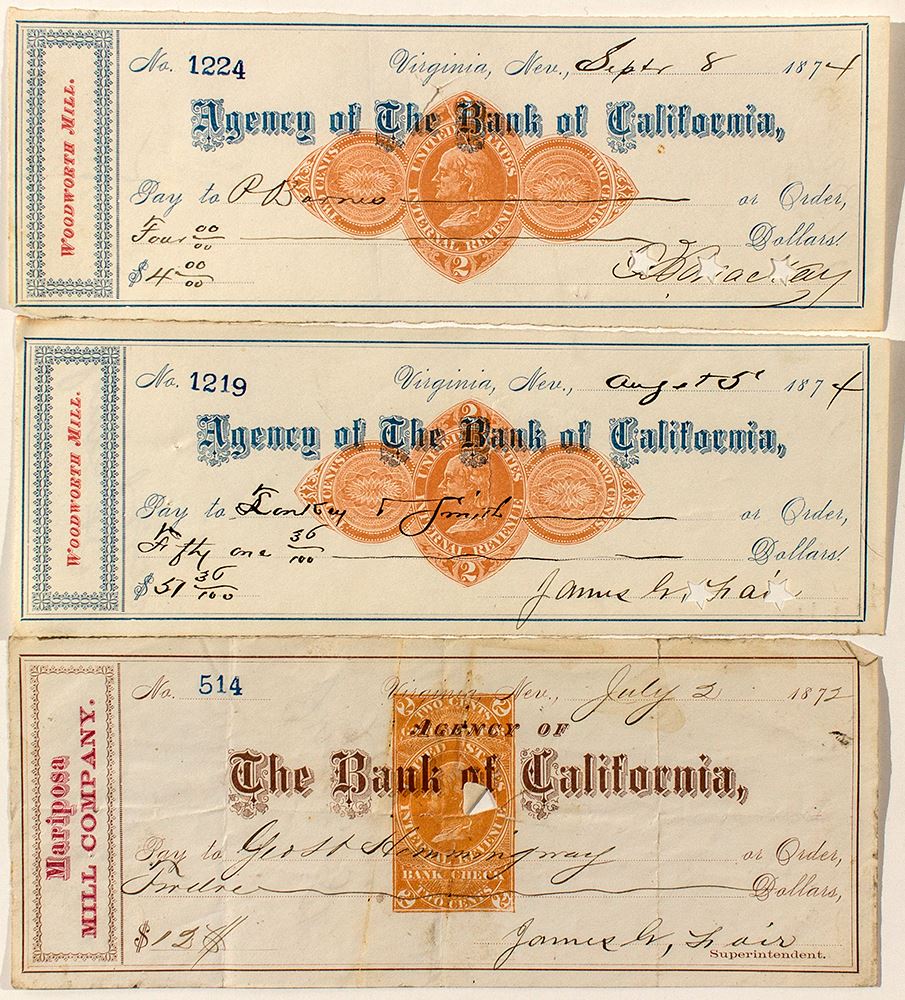 WOODWORTH MILL.
No. 1224 Virginia, Nev., Sept 8 1874
Agency of The Bank of California,
Pay to P Barnes or Order,
Four 00/00 Dollars.
$4 00/00
TWO CENTS
UNITED STATES
INTERNAL REVENUE
2
TWO CENTS
Mackay
WOODWORTH MILL.
No. 1219 Virginia, Nev., August 5 1874
Agency of The Bank of California,
Pay to Smith or Order,
Fifty one 36/100 Dollars.
$51 36/100
2
James G. Fair
Mariposa
MILL COMPANY.
No. 514 Virginia Nev., July 2 1872
AGENCY OF
The Bank of California,
Pay to Hemmingway or Order,
Twelve Dollars,
$12
TWO CENTS
BANK CHECK
TWO CENTS
James G. Fair
Superintendent.